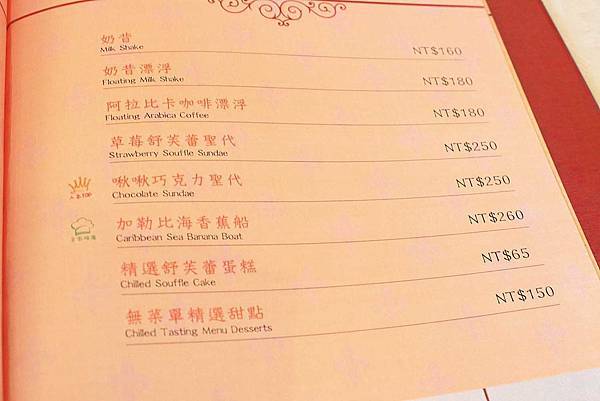 奶昔
Milk Shake
NT$160
奶昔漂浮
Floating Milk Shake
NT$180
阿拉比卡咖啡漂浮
Floating Arabica Coffee
NT$180
草莓舒芙蕾聖代
Strawberry Souffle Sundae
NT$250
啾啾巧克力聖代
Chocolate Sundae
NT$250
加勒比海香蕉船
Caribbean Sea Banana Boat
NT$260
精選舒芙蕾蛋糕
Chilled Souffle Cake
NT$65
無菜單精選甜點
Chilled Tasting Menu Desserts
NT$150